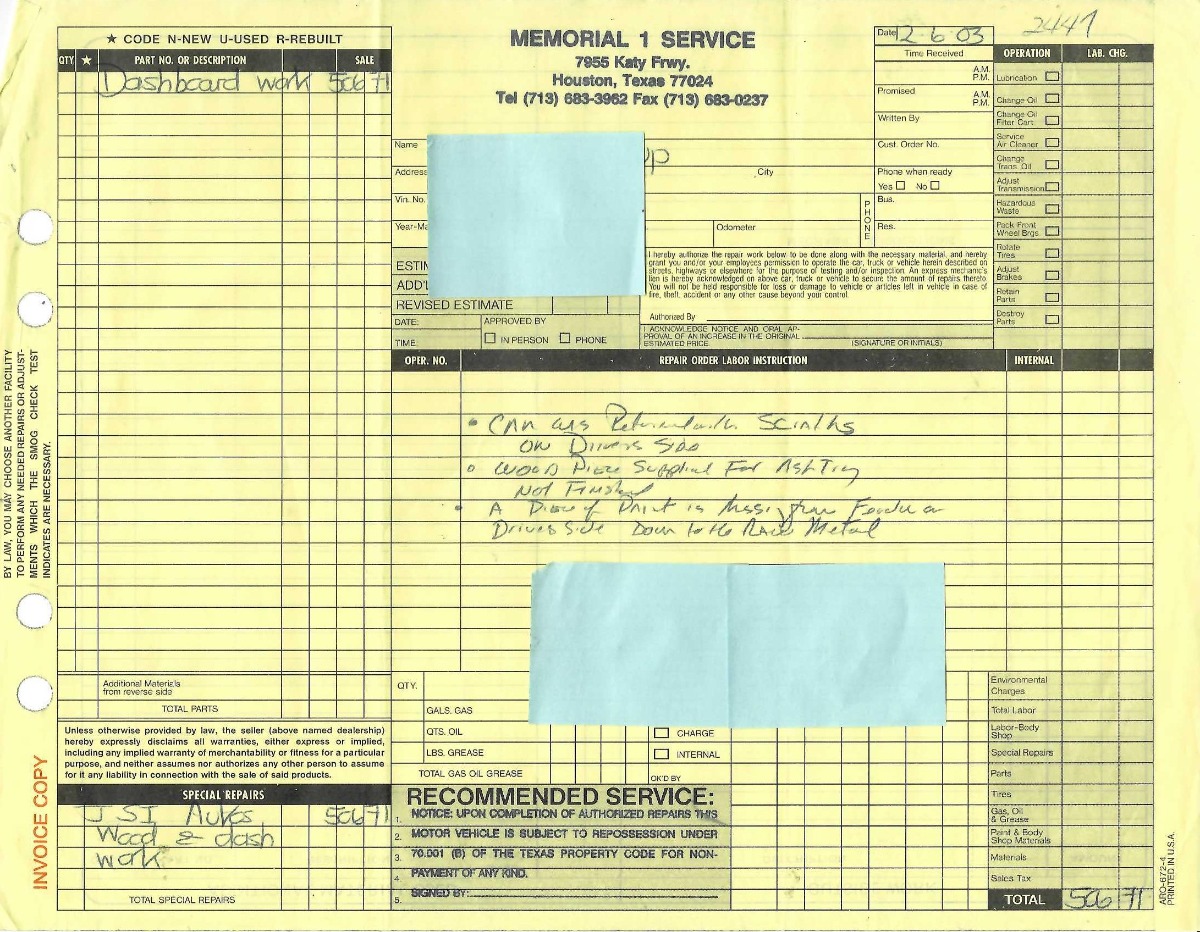 ★ CODE N-NEW U-USED R-REBUILT
QTY ★ PART NO. OR DESCRIPTION SALE
Dashboard work 506 71
Additional Materials
from reverse side
TOTAL PARTS
Unless otherwise provided by law, the seller (above named dealership)
hereby expressly disclaims all warranties, either express or implied,
including any implied warranty of merchantability or fitness for a particular
purpose, and neither assumes nor authorizes any other person to assume
for it any liability in connection with the sale of said products.
SPECIAL REPAIRS
JSI Autos 506 71
Wood & dash
work
TOTAL SPECIAL REPAIRS
BY LAW, YOU MAY CHOOSE ANOTHER FACILITY
TO PERFORM ANY NEEDED REPAIRS OR ADJUST-
MENTS WHICH THE SMOG CHECK TEST
INDICATES ARE NECESSARY.
INVOICE COPY
MEMORIAL 1 SERVICE
7955 Katy Frwy.
Houston, Texas 77024
Tel (713) 683-3962 Fax (713) 683-0237
Date 12-6-03
2447
Time Received
A.M.
P.M.
Promised
A.M.
P.M.
Written By
Name
Cust. Order No.
Address
City
Phone when ready
Yes No
Vin. No.
PHONE
Bus.
Year-Ma
Odometer
Res.
ESTI
ADD'L
REVISED ESTIMATE
DATE:
APPROVED BY
TIME
IN PERSON PHONE
I hereby authorize the repair work below to be done along with the necessary material, and hereby
grant you and/or your employees permission to operate the car, truck or vehicle herein described on
streets, highways or elsewhere for the purpose of testing and/or inspection. An express mechanic's
lien is hereby acknowledged on above car, truck or vehicle to secure the amount of repairs thereto.
You will not be held responsible for loss or damage to vehicle or articles left in vehicle in case of
fire, theft, accident or any other cause beyond your control.
Authorized By
I ACKNOWLEDGE NOTICE AND ORAL AP-
PROVAL OF AN INCREASE IN THE ORIGINAL
ESTIMATED PRICE.
(SIGNATURE OR INITIALS)
OPERATION LAB. CHG.
Lubrication
Change Oil
Change Oil
Filter Cart.
Service
Air Cleaner
Change
Trans. Oil
Adjust
Transmission
Hazardous
Waste
Pack Front
Wheel Brgs
Rotate
Tires
Adjust
Brakes
Retain
Parts
Destroy
Parts
OPER. NO. REPAIR ORDER LABOR INSTRUCTION INTERNAL
• CAR was Returned with
ON Drivers Side
• WOOD Piece Supplied For AshTray
Not Finished
• A Piece of Paint is Missing from Fender on
Drivers Side Down to the Metal
QTY.
GALS. GAS
QTS. OIL
LBS. GREASE
TOTAL GAS OIL GREASE
CHARGE
INTERNAL
OK'D BY
RECOMMENDED SERVICE:
1. NOTICE: UPON COMPLETION OF AUTHORIZED REPAIRS THIS
2. MOTOR VEHICLE IS SUBJECT TO REPOSSESSION UNDER
3. 70.001 (B) OF THE TEXAS PROPERTY CODE FOR NON-
4. PAYMENT OF ANY KIND.
5. SIGNED BY:
Environmental
Charges
Total Labor
Labor-Body
Shop
Special Repairs
Parts
Tires
Gas, Oil
& Grease
Paint & Body
Shop Materials
Materials
Sales Tax
TOTAL 506 71
ARO-672-4
PRINTED IN U.S.A.